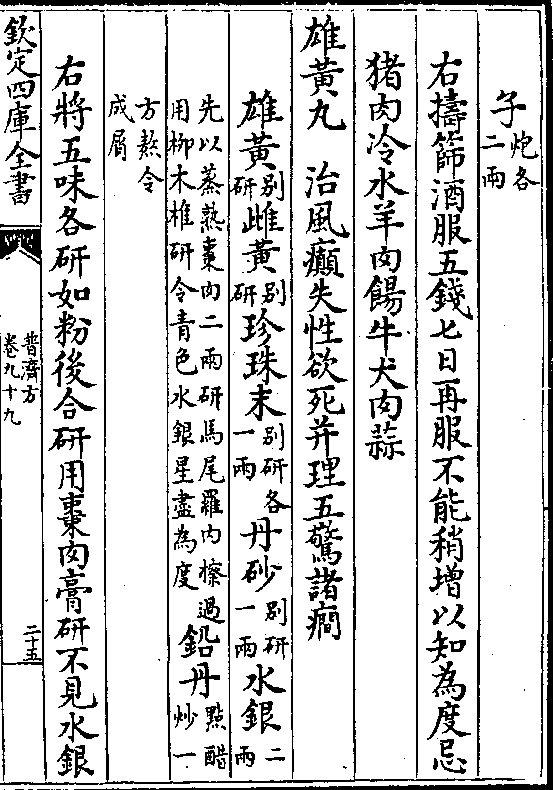 子炮各二兩
右擣篩酒服五錢匕日再服不能稍增以知為度忌
猪肉冷水羊肉餳牛犬肉蒜
雄黃丸　治風癲失性欲死并理五驚諸癇
雄黃别研雌黃别研珍珠末别研各一兩丹砂别研一兩水銀二兩
先以蒸熟棗肉二兩研馬尾羅内擦過用柳木椎研令青色水銀星盡為度鉛丹點醋炒一
方熬令成屑
右將五味各研如粉後合研用棗肉膏研不見水銀
欽定四庫全書
普濟方
卷九十九
二十五